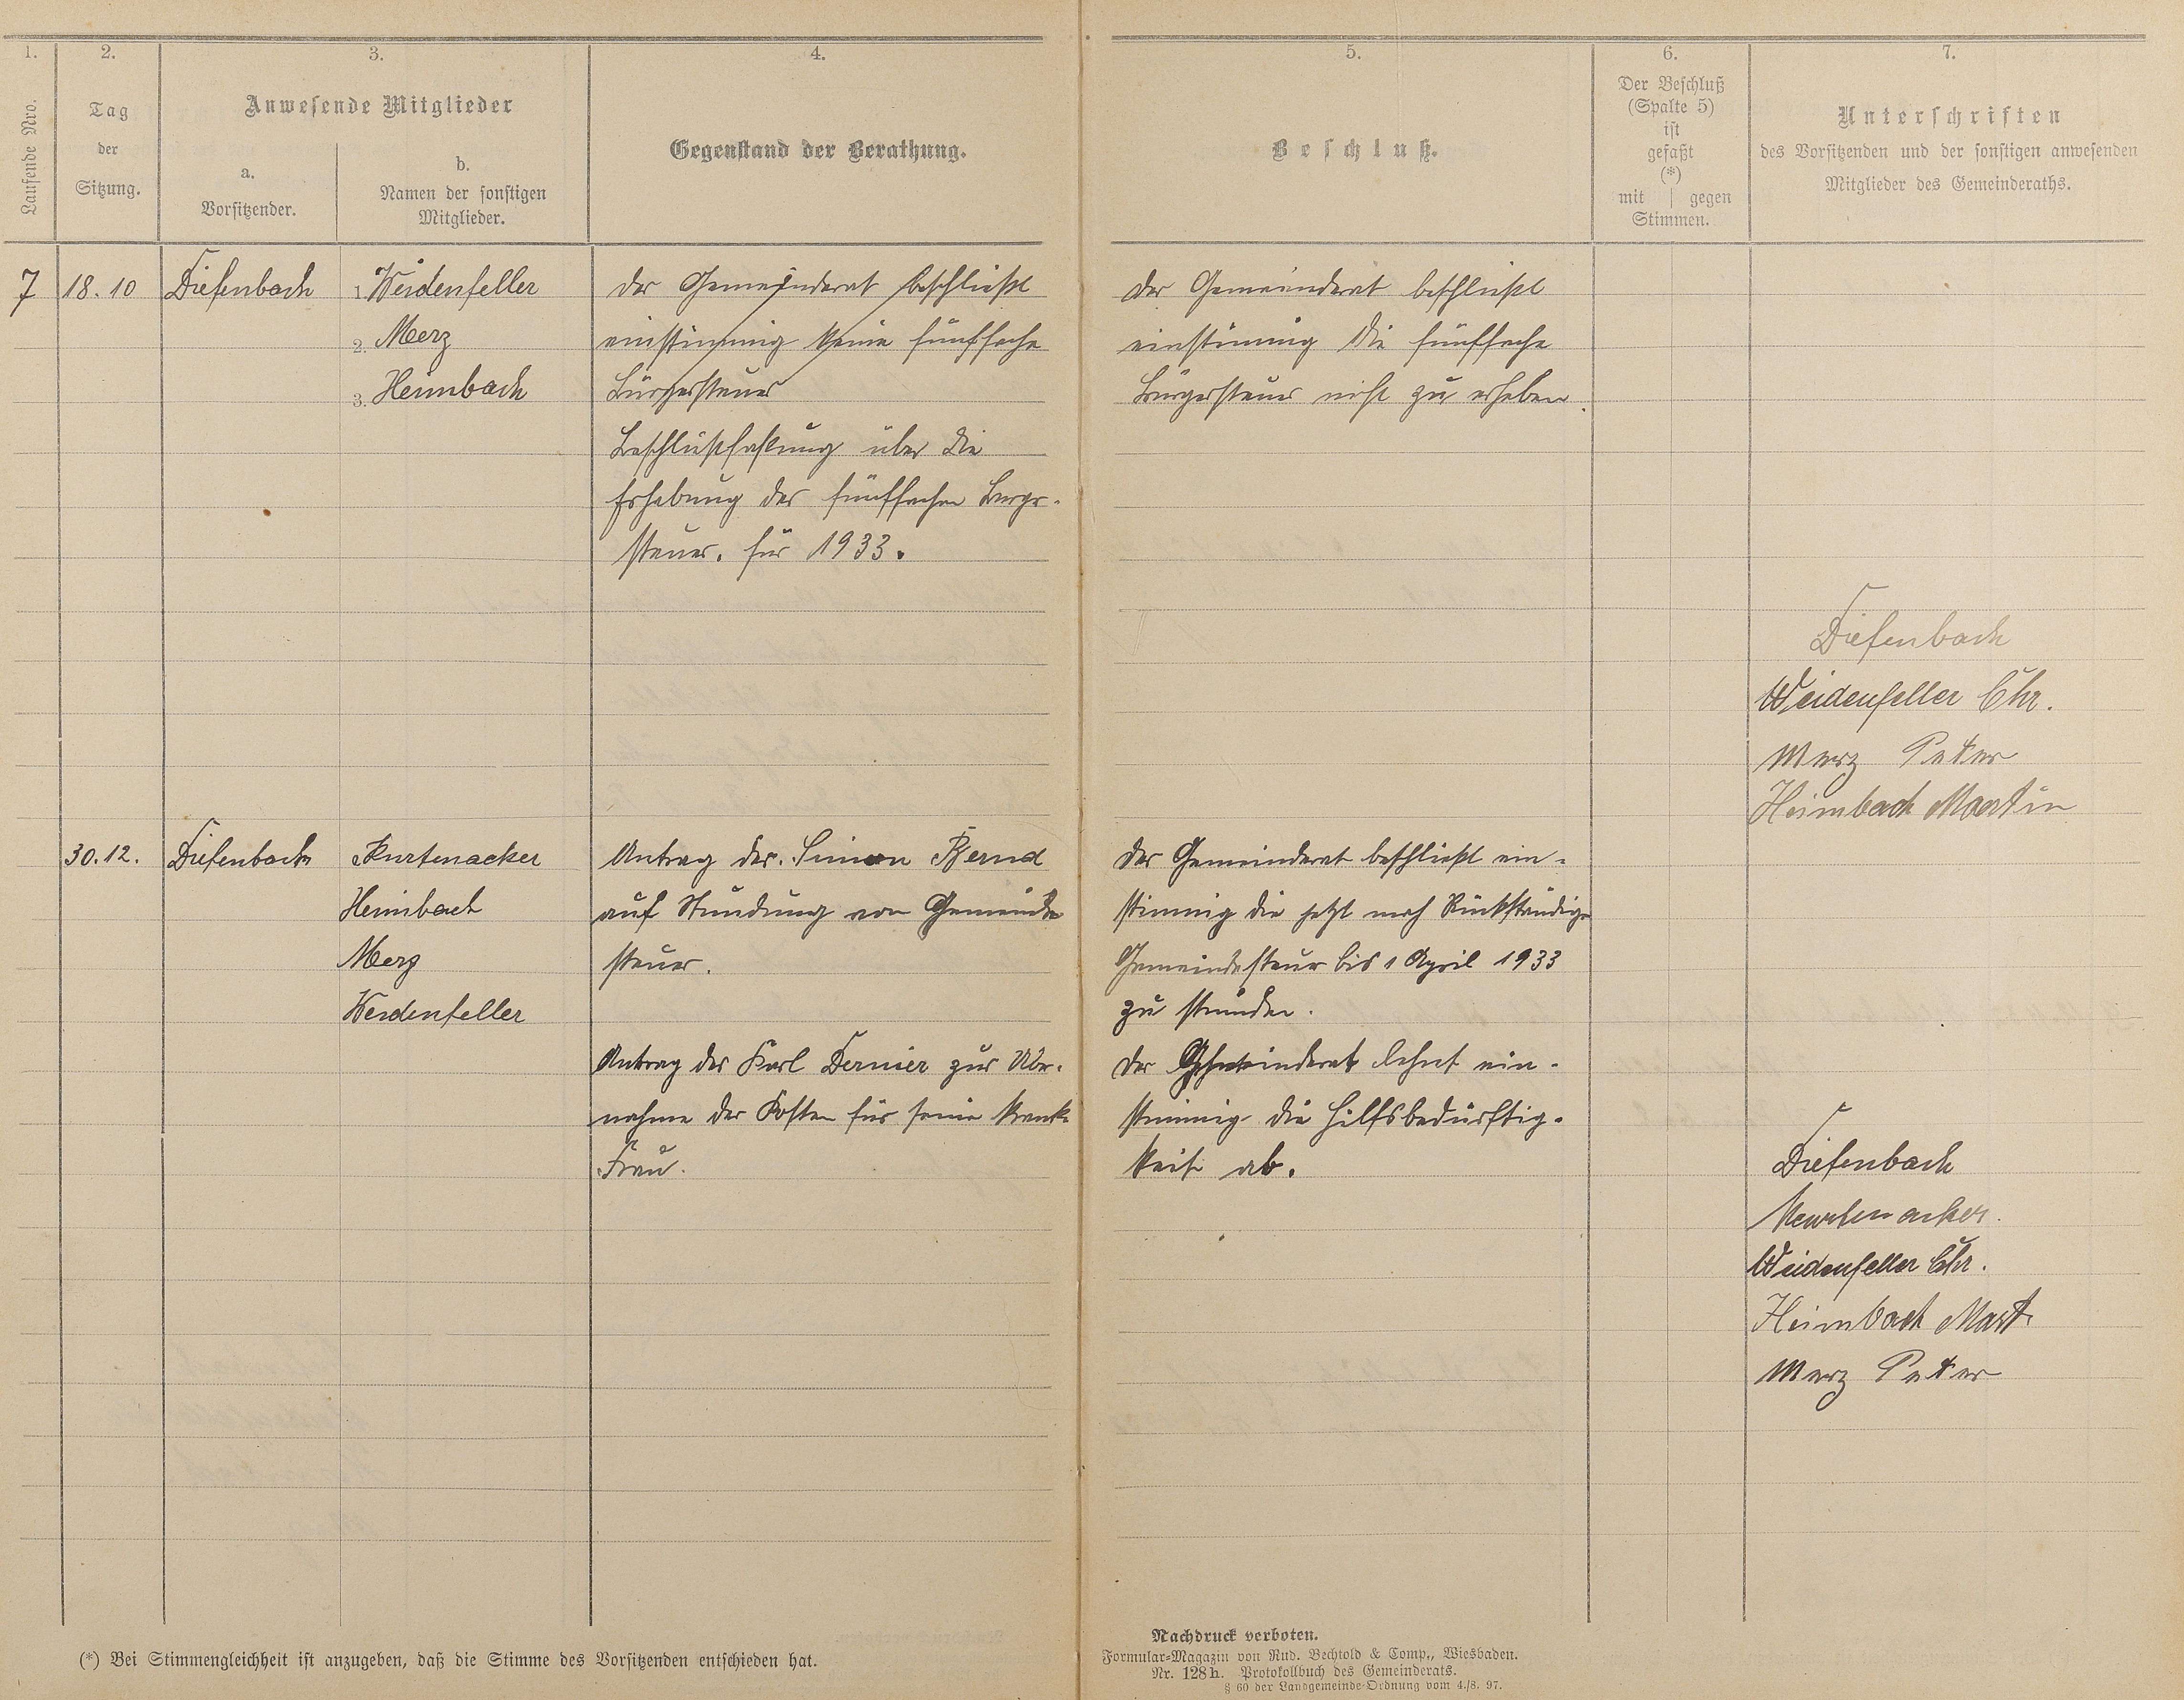 1.
2.
3.
4.
5.
6.
7.
Laufende Nro.
Tag
der
Sitzung.
Anwesende Mitglieder
a.
Vorsitzender.
b.
Namen der sonstigen
Mitglieder.
Gegenstand der Berathung.
Beschluß.
Der Beschluß
(Spalte 5)
ist
gefaßt
(*)
mit | gegen
Stimmen.
Unterschriften
des Vorsitzenden und der sonstigen anwesenden
Mitglieder des Gemeinderaths.
7
18.10
Diefenbach
1. Weidenfeller
2. Merz
3. Heimbach
Der Gemeinderat beschließt
einstimmig keine fünffache
Bürgersteuer
Beschlußfassung über die
Erhebung der fünffachen Bürger-
steuer. für 1933.
Der Gemeinderat beschließt
einstimmig die fünffache
Bürgersteuer nicht zu erheben.
Diefenbach
Weidenfeller Chr.
Merz Peter
Heimbach Martin
30.12.
Diefenbach
Kurtenacker
Heimbach
Merz
Weidenfeller
Antrag des. Simon Bernd
auf Stundung von Gemeinde
steuer.
Antrag des Karl Dernier zur Über-
nahme der Kosten für seine kranke
Frau.
Der Gemeinderat beschließt ein-
stimmig die jetzt noch Rückständige
Gemeindesteuer bis 1 April 1933
zu stunden.
Der Gemeinderat lehnt ein-
stimmig die Hilfsbedürftig-
keit ab.
Diefenbach
Kurtenacker.
Weidenfeller Chr.
Heimbach Mart.
Merz Peter
(*) Bei Stimmengleichheit ist anzugeben, daß die Stimme des Vorsitzenden entschieden hat.
Nachdruck verboten.
Formular-Magazin von Rud. Bechtold & Comp., Wiesbaden.
Nr. 128 h. Protokollbuch des Gemeinderats.
§ 60 der Landgemeinde-Ordnung vom 4./8. 97.